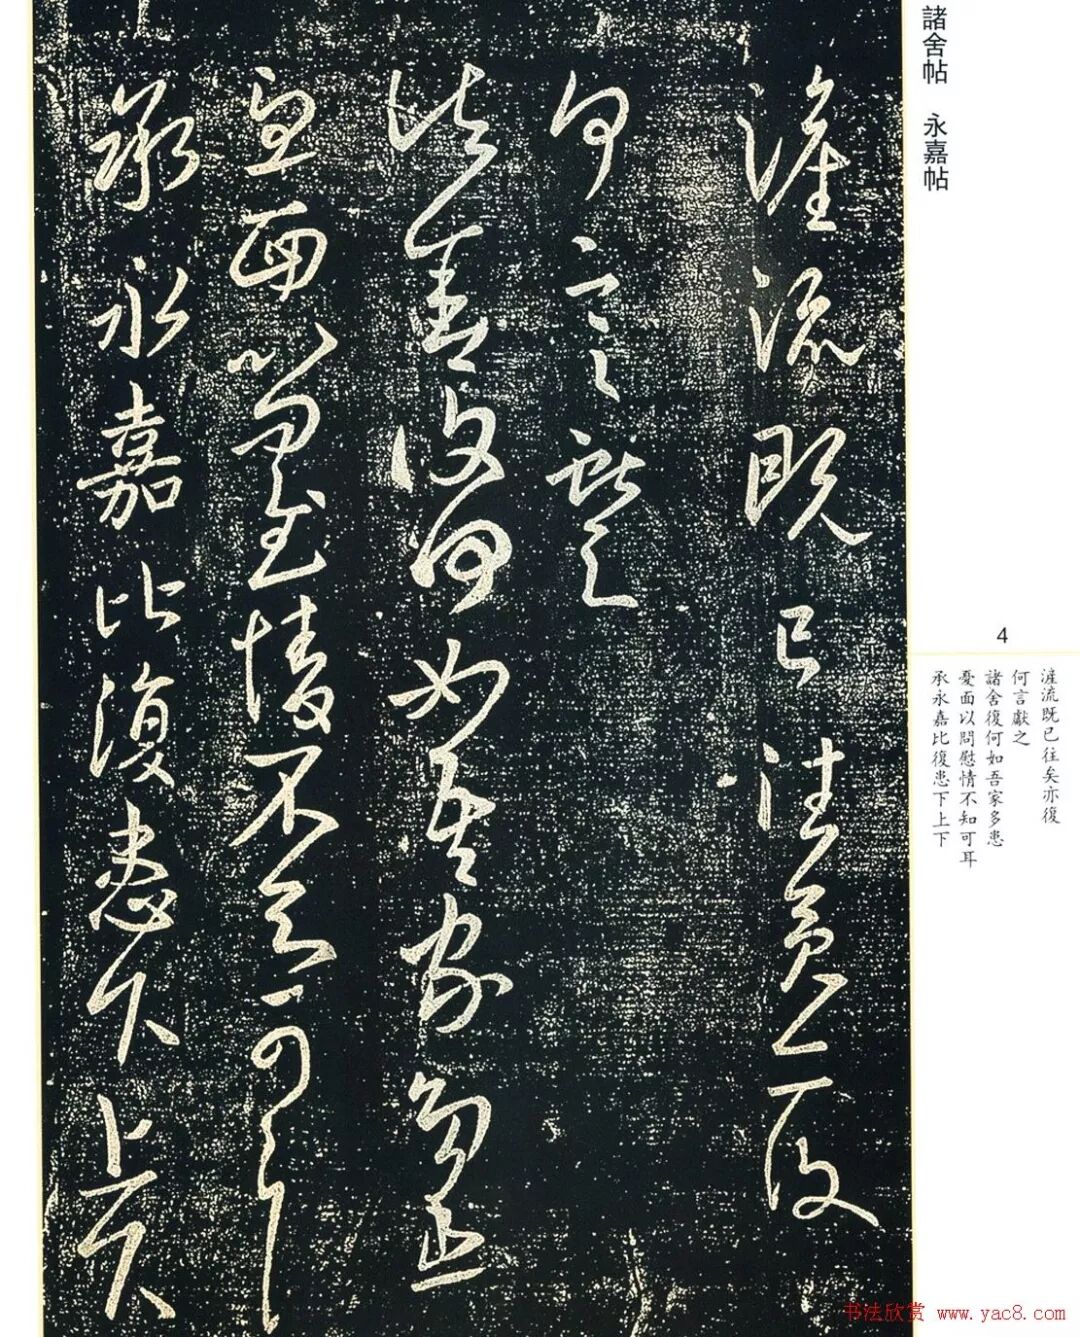 諸舍帖 永嘉帖
漄流既已往矣亦復
何言獻之
諸舍復何如吾家多患
憂面以問慰情不知可耳
承永嘉比復患下上下
4
漄流既已往矣亦復
何言獻之
諸舍復何如吾家多患
憂面以問慰情不知可耳
承永嘉比復患下上下
书法欣赏 www.yac8.com